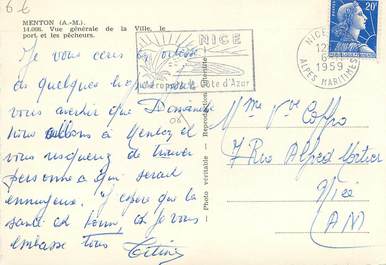 6€
MENTON (A.-M.).
14.008. Vue générale de la Ville, le
port et les pêcheurs.
Je vous
quelques
vous avertir que Dimanche
nous allons à Menton et
vous risquez de trouver
personne ce qui serait
ennuyeux. J'espère que la
santé est bonne, et je vous
embrasse tous Titine
NICE
aéroport Côte d'Azur
Photo véritable - Reproduction interdite
06
NICE
12
1959
ALPES MARITIMES
20F
Mme Vve Coppo
7 Rue Alfred Mortier
Nice
AM